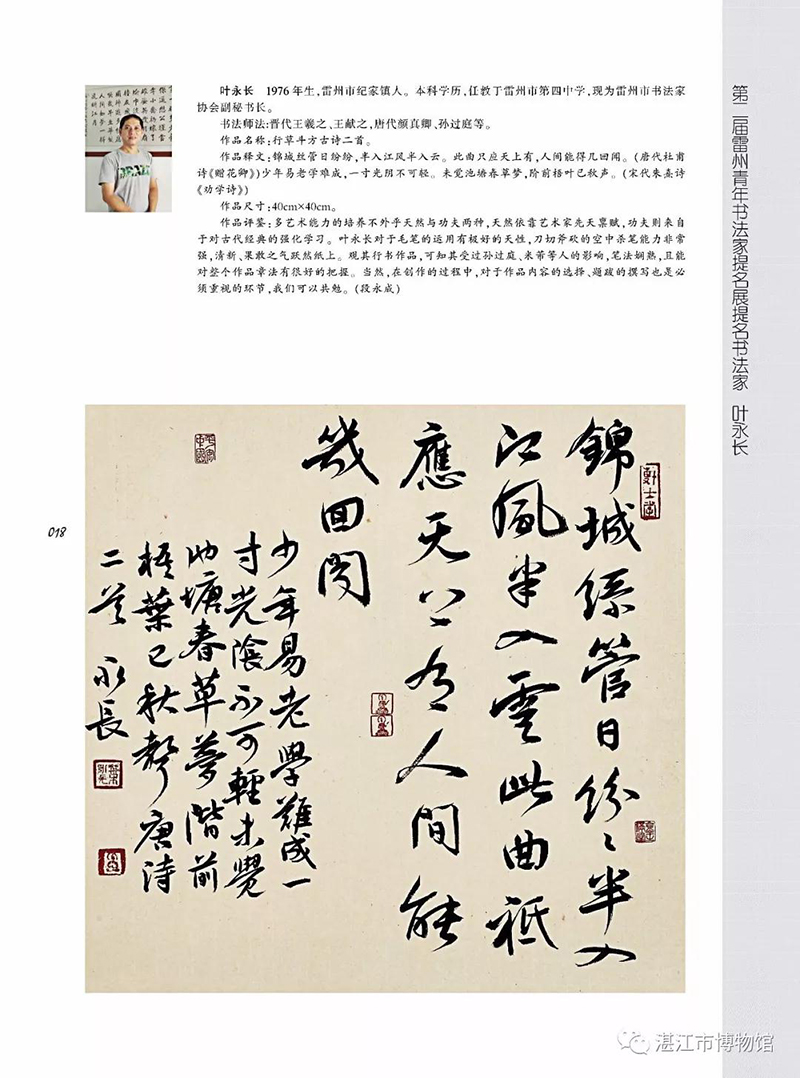 叶永长 1976年生,雷州市纪家镇人。本科学历,任教于雷州市第四中学,现为雷州市书法家
协会副秘书长。
书法师法:晋代王羲之、王献之,唐代颜真卿、孙过庭等。
作品名称:行草斗方古诗二首。
作品释文:锦城丝管日纷纷,半入江风半入云。此曲只应天上有,人间能得几回闻。(唐代杜甫
诗《赠花卿》)少年易老学难成,一寸光阴不可轻。未觉池塘春草梦,阶前梧叶已秋声。(宋代朱熹诗
《劝学诗》)
作品尺寸:40cm×40cm。
作品评鉴:多艺术能力的培养不外乎天然与功夫两种,天然依靠艺术家先天禀赋,功夫则来自
于对古代经典的强化学习。叶永长对于毛笔的运用有极好的天性,刀切斧砍的空中杀笔能力非常
强,清新、果敢之气跃然纸上。观其行书作品,可知其受过孙过庭、米芾等人的影响,笔法娴熟,且能
对整个作品章法有很好的把握。当然,在创作的过程中,对于作品内容的选择、题跋的撰写也是必
须重视的环节,我们可以共勉。(段永成)
第二届雷州青年书法家提名展提名书法家 叶永长
錦城絲管日紛〻半入
江風半入雲此曲祗
應天上有人間能
幾回聞
少年易老學難成一
寸光陰不可輕未覺
池塘春草夢階前
梧葉已秋聲唐詩
二首 永長
018
湛江市博物馆